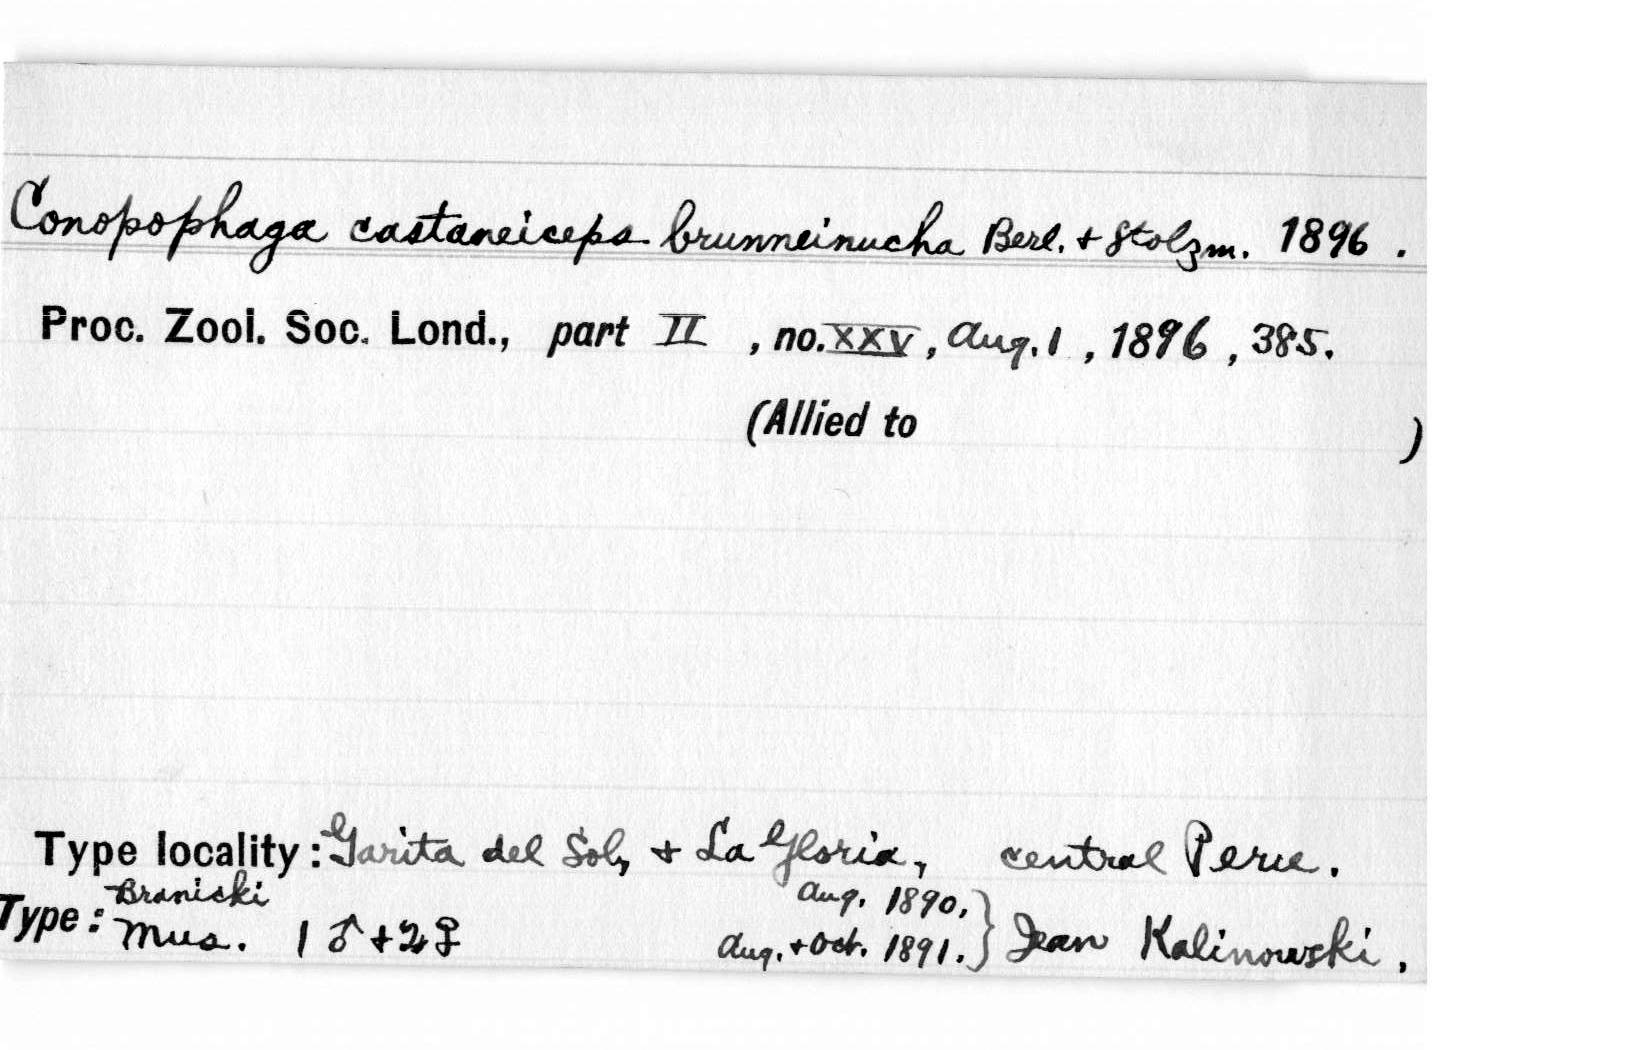 Conopophaga castaneiceps brunneinucha Berl. + Stolzm. 1896.
Proc. Zool. Soc. Lond., part II, no. XXV, Aug. 1, 1896, 385.
(Allied to )
Type locality: Garita del Sol, + La Gloria, central Peru.
Branicki Aug. 1890,
Type: Mus. 1 ♂ + 2 ♀ Aug. + Oct. 1891. } Jean Kalinowski.